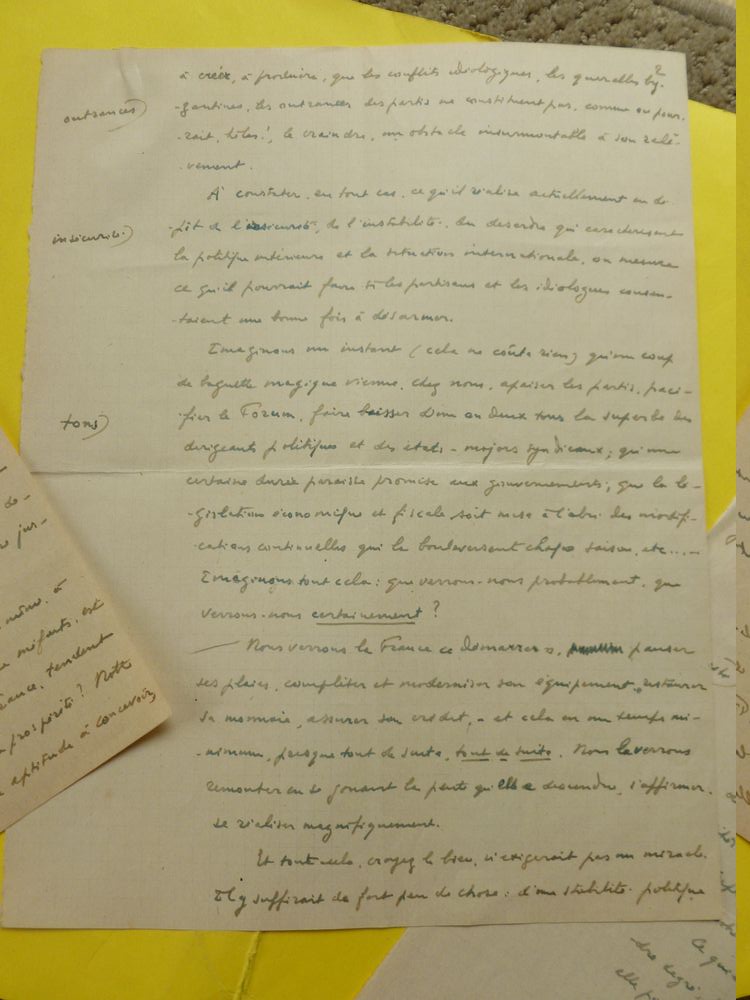 2
à créer, à produire, que les conflits idéologiques, les querelles by-
outrances)
-zantines, les outrances des partis ne constituent pas, comme on pour-
-rait, hélas!, le craindre, un obstacle insurmontable à son relè-
-vement.
A constater, en tout cas, ce qu'il réalise actuellement en dé-
insécurité)
-pit de l'insécurité, de l'instabilité, du désordre qui caractérisent
la politique intérieure et la situation internationale, on mesure
ce qu'il pourrait faire si les partisans et les idéologues consen-
-taient une bonne fois à désarmer.
Imaginons un instant (cela ne coûte rien) qu'un coup
de baguette magique vienne, chez nous, apaiser les partis, paci-
tons)
-fier le Forum, faire baisser d'un ou deux tons la superbe des
dirigeants politiques et des états-majors syndicaux; qu'une
certaine durée paraisse promise aux gouvernements; que la lé-
-gislation économique et fiscale soit mise à l'abri des modifi-
-cations continuelles qui la bouleversent chaque saison, etc...-
Imaginons tout cela: que verrons-nous probablement, que
verrons-nous certainement?
— Nous verrons la France démarrer, panser
ses plaies, compléter et moderniser son équipement, restaurer
sa monnaie, assurer son crédit,- et cela en un temps mi-
-nimum, presque tout de suite, tout de suite. Nous la verrons
remonter en se jouant la pente qu'elle a descendue, s'affirmer,
se réaliser magnifiquement.
Et tout cela, croyez le bien, n'exigerait pas un miracle.
Il y suffirait de fort peu de chose: d'une stabilité politique
dé-
jur-
même, à
méfaits, est
tendent
prospérité? Notre
aptitude à concevoir,
Ce qui
elle